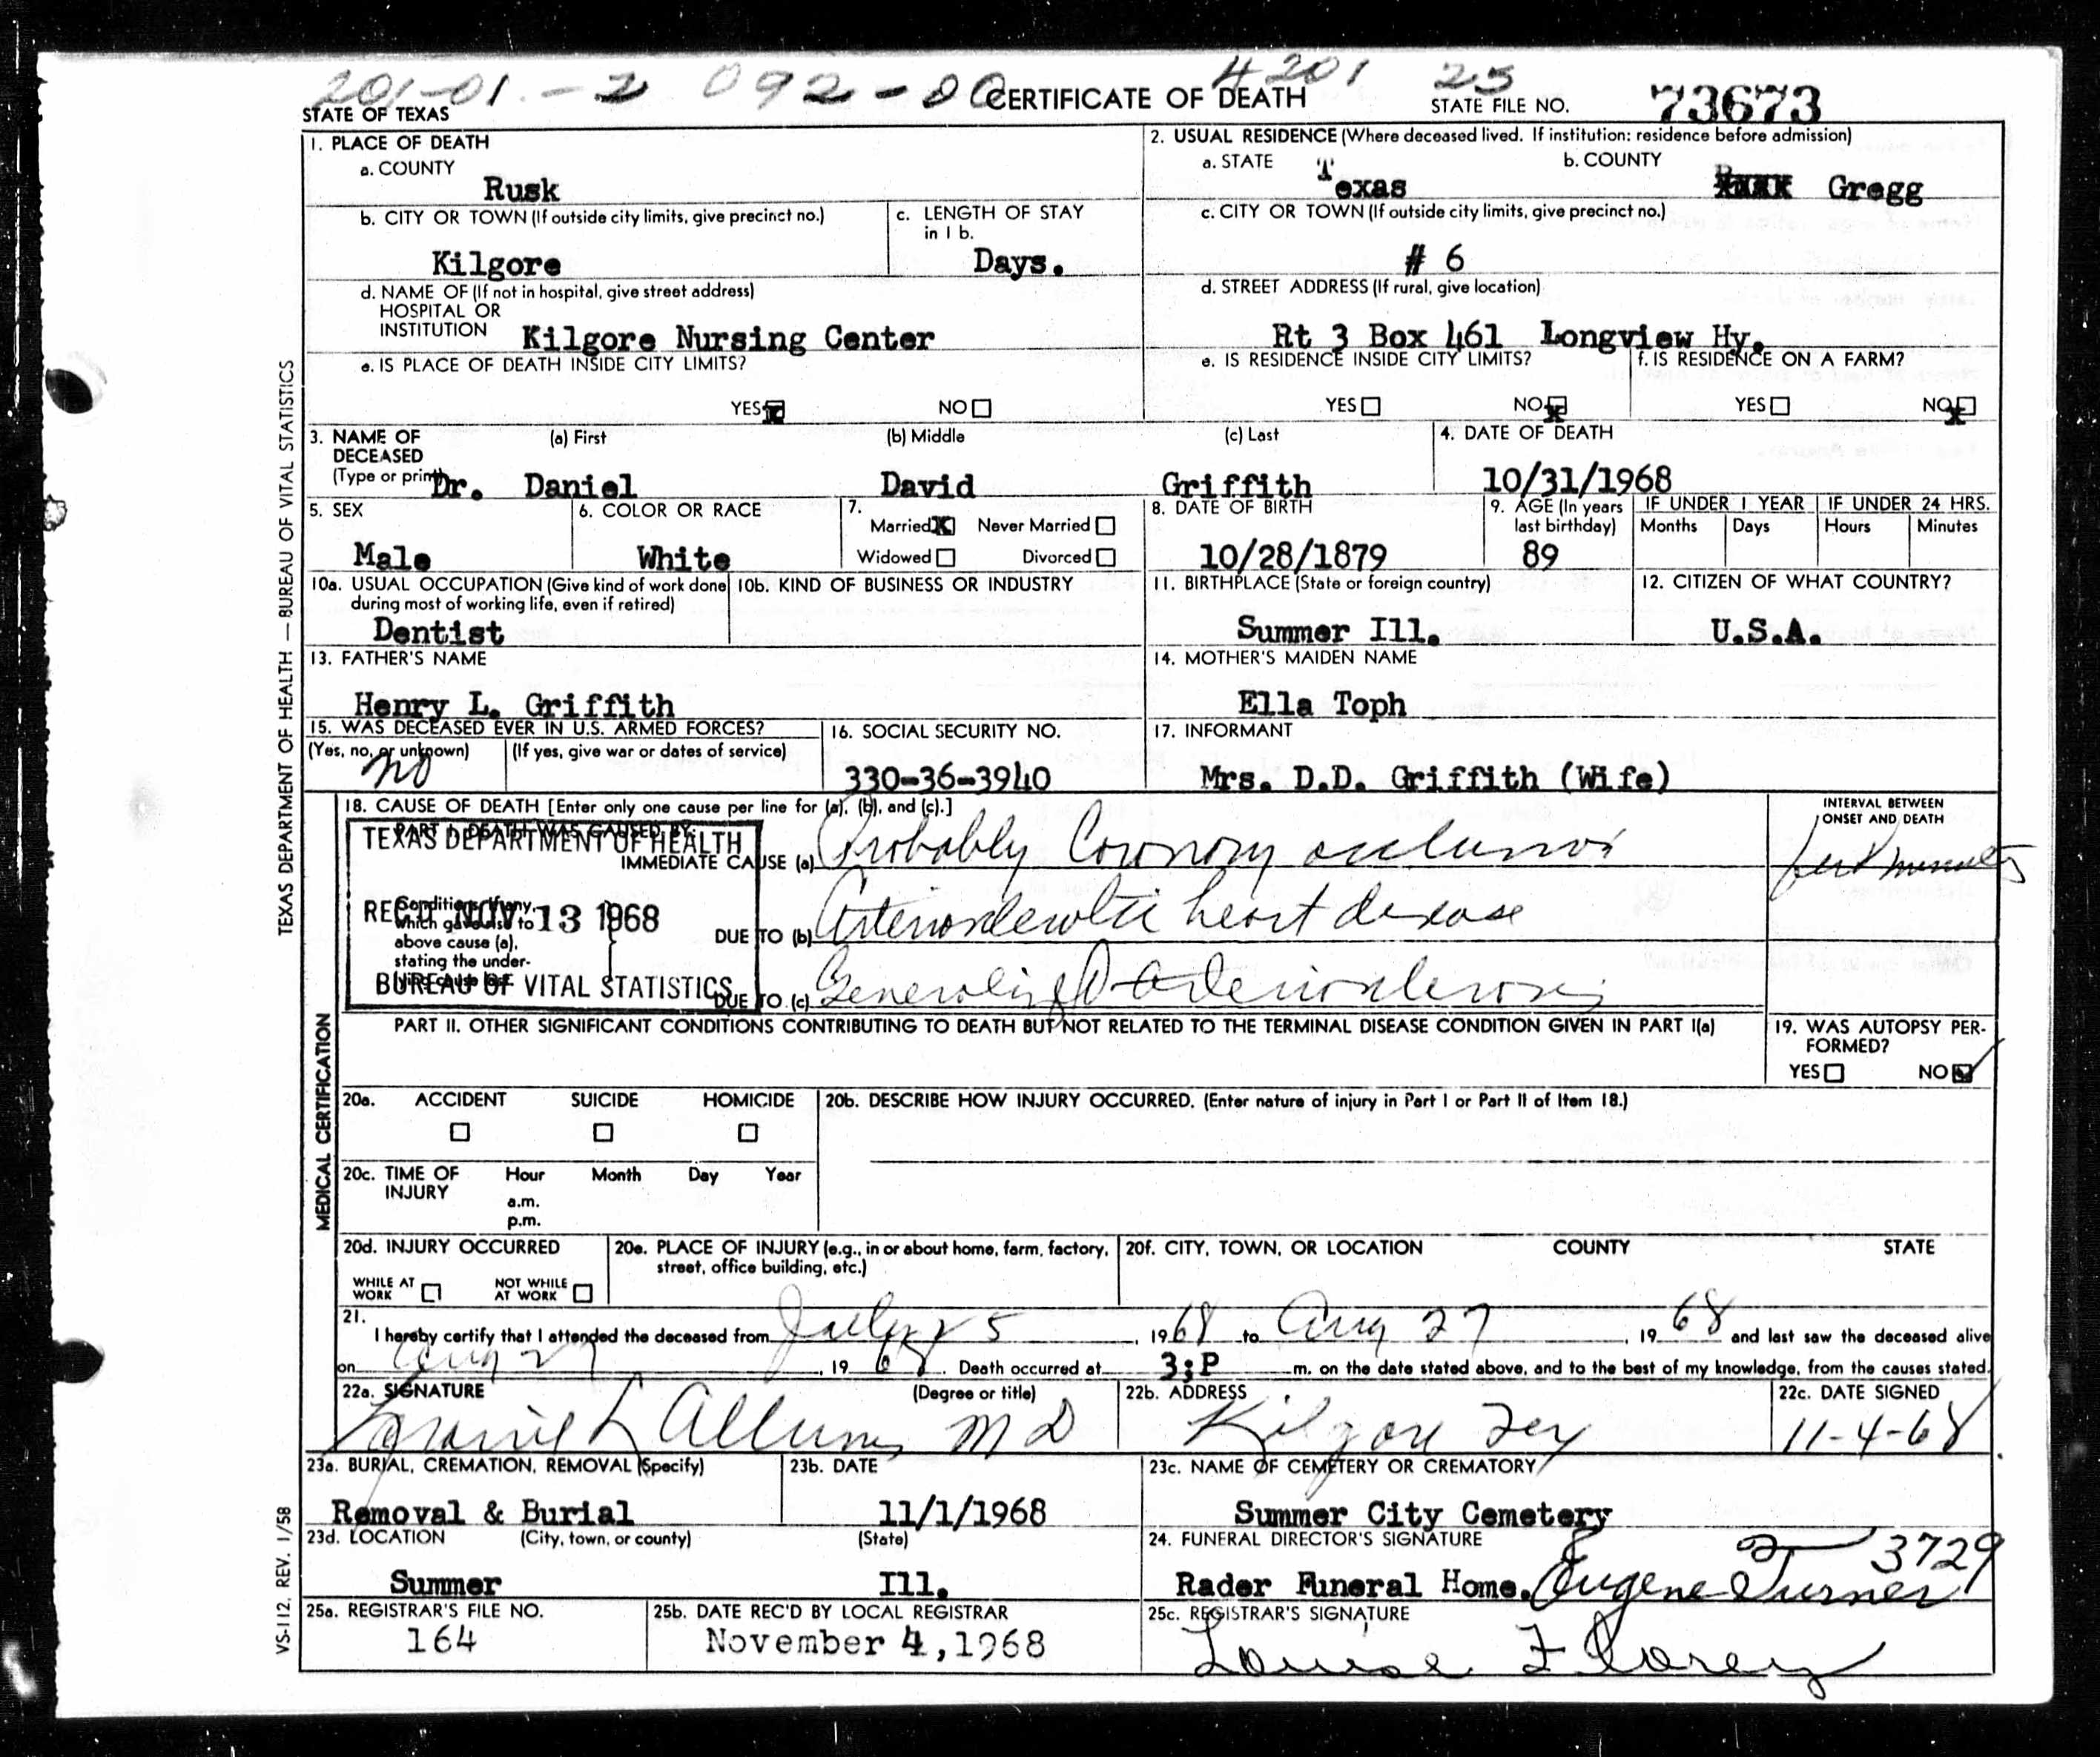 201-01-2 092-00 4201 25
STATE OF TEXAS CERTIFICATE OF DEATH STATE FILE NO. 73673
1. PLACE OF DEATH
a. COUNTY
Rusk
2. USUAL RESIDENCE (Where deceased lived. If institution: residence before admission)
a. STATE b. COUNTY
Texas Gregg
b. CITY OR TOWN (If outside city limits, give precinct no.)
Kilgore
c. LENGTH OF STAY
in 1 b.
Days.
c. CITY OR TOWN (If outside city limits, give precinct no.)
# 6
d. NAME OF (If not in hospital, give street address)
HOSPITAL OR
INSTITUTION Kilgore Nursing Center
d. STREET ADDRESS (If rural, give location)
Rt 3 Box 461 Longview Hy.
e. IS PLACE OF DEATH INSIDE CITY LIMITS?
YES NO
e. IS RESIDENCE INSIDE CITY LIMITS?
YES NO
f. IS RESIDENCE ON A FARM?
YES NO
3. NAME OF DECEASED (Type or print)
(a) First (b) Middle (c) Last
Dr. Daniel David Griffith
4. DATE OF DEATH
10/31/1968
5. SEX
Male
6. COLOR OR RACE
White
7.
Married Never Married
Widowed Divorced
8. DATE OF BIRTH
10/28/1879
9. AGE (In years
last birthday)
89
IF UNDER 1 YEAR
Months Days
IF UNDER 24 HRS.
Hours Minutes
10a. USUAL OCCUPATION (Give kind of work done
during most of working life, even if retired)
Dentist
10b. KIND OF BUSINESS OR INDUSTRY
11. BIRTHPLACE (State or foreign country)
Summer Ill.
12. CITIZEN OF WHAT COUNTRY?
U.S.A.
13. FATHER'S NAME
Henry L. Griffith
14. MOTHER'S MAIDEN NAME
Ella Toph
15. WAS DECEASED EVER IN U.S. ARMED FORCES?
(Yes, no, or unknown) (If yes, give war or dates of service)
no
16. SOCIAL SECURITY NO.
330-36-3940
17. INFORMANT
Mrs. D.D. Griffith (Wife)
18. CAUSE OF DEATH [Enter only one cause per line for (a), (b), and (c).]
PART I. DEATH WAS CAUSED BY:
IMMEDIATE CAUSE (a) Probably Coronory occlusion
INTERVAL BETWEEN
ONSET AND DEATH
TEXAS DEPARTMENT OF HEALTH
REC'D NOV 13 1968
BUREAU OF VITAL STATISTICS
Conditions, if any,
which gave rise to
above cause (a),
stating the under-
DUE TO (b) Arteriosclerotic heart disease
DUE TO (c) Generalized Arteriosclerosis
PART II. OTHER SIGNIFICANT CONDITIONS CONTRIBUTING TO DEATH BUT NOT RELATED TO THE TERMINAL DISEASE CONDITION GIVEN IN PART I(a)
19. WAS AUTOPSY PER-
FORMED?
YES NO
20a. ACCIDENT SUICIDE HOMICIDE
20b. DESCRIBE HOW INJURY OCCURRED. (Enter nature of injury in Part I or Part II of Item 18.)
20c. TIME OF
INJURY
Hour Month Day Year
a.m.
p.m.
20d. INJURY OCCURRED
WHILE AT
WORK
NOT WHILE
AT WORK
20e. PLACE OF INJURY (e.g., in or about home, farm, factory,
street, office building, etc.)
20f. CITY, TOWN, OR LOCATION COUNTY STATE
21.
I hereby certify that I attended the deceased from July 25, 1968 to Aug 27, 1968 and last saw the deceased alive
on Aug 27, 1968. Death occurred at 3;P m. on the date stated above, and to the best of my knowledge, from the causes stated.
22a. SIGNATURE (Degree or title)
L Allums MD
22b. ADDRESS
Kilgore Tex
22c. DATE SIGNED
11-4-68
23a. BURIAL, CREMATION, REMOVAL (Specify)
Removal & Burial
23b. DATE
11/1/1968
23c. NAME OF CEMETERY OR CREMATORY
Summer City Cemetery
23d. LOCATION (City, town, or county) (State)
Summer Ill.
24. FUNERAL DIRECTOR'S SIGNATURE
3729
Rader Funeral Home. Eugene Turner
25a. REGISTRAR'S FILE NO.
164
25b. DATE REC'D BY LOCAL REGISTRAR
November 4, 1968
25c. REGISTRAR'S SIGNATURE
Louise F Corey
TEXAS DEPARTMENT OF HEALTH — BUREAU OF VITAL STATISTICS
MEDICAL CERTIFICATION
VS-112, REV. 1/58